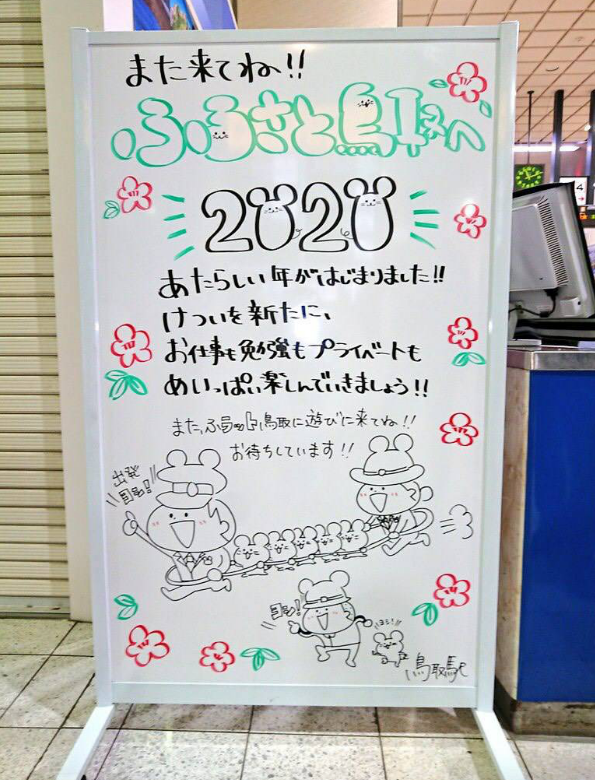 また来てね!!
ふるさと鳥取へ
2020
あたらしい年がはじまりました!!
けついを新たに、
お仕事も勉強もプライベートも
めいっぱい楽しんでいきましょう!!
鳥取に遊びに来てね!!
お待ちしています!!
出発
目标!
目标!
ヨシ!!
鳥取駅
4